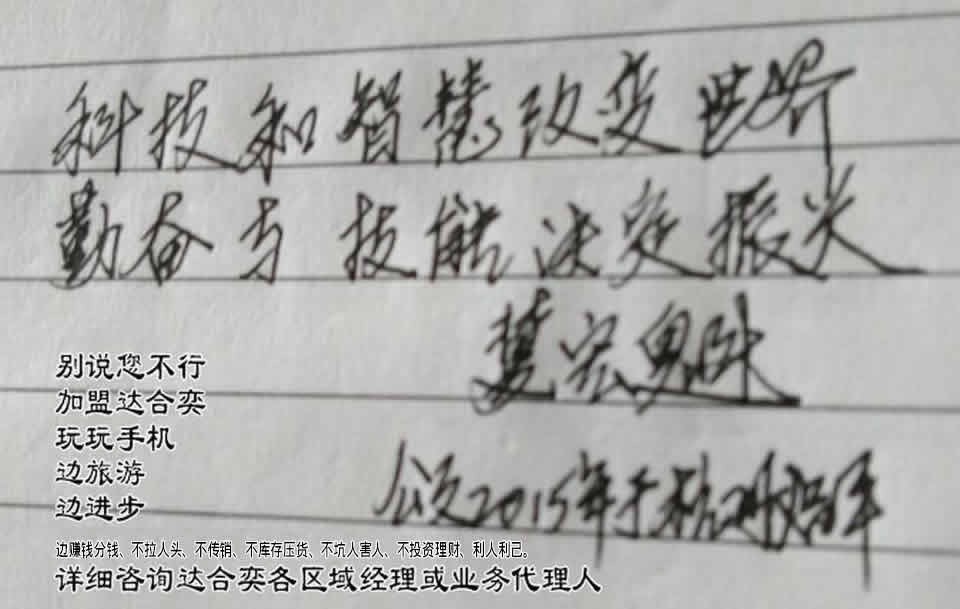 科技和智慧改变世界
勤奋与技能决定振兴
公元2015年于
别说您不行
加盟达合奕
玩玩手机
边旅游
边进步
边赚钱分钱、不拉人头、不传销、不库存压货、不坑人害人、不投资理财、利人利己。
详细咨询达合奕各区域经理或业务代理人